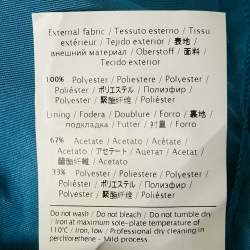 External fabric / Tessuto esterno / Tissu
extérieur / Tejido exterior / 表地 /
внешний материал / Oberstoff / 面料 /
Tecido exterior
100% Polyester / Poliestere / Polyester /
Poliéster / ポリエステル / Полиэфир /
Polyester / 聚酯纤维 / Poliéster
Lining / Fodera / Doublure / Forro / 裏地 /
подкладка / Futter / 衬里 / Forro
67% Acetate / Acetato / Acétate /
Acetato / アセテート / Ацетат / Acetat /
醋酯纤维 / Acetato
33% Polyester / Poliestere / Polyester /
Poliéster / ポリエステル / Полиэфир /
Polyester / 聚酯纤维 / Poliéster
Do not wash / Do not bleach / Do not tumble dry
/ Iron at maximum sole-plate temperature of
110°C / Iron, low / Professional dry cleaning in
perchloroethene - Mild process